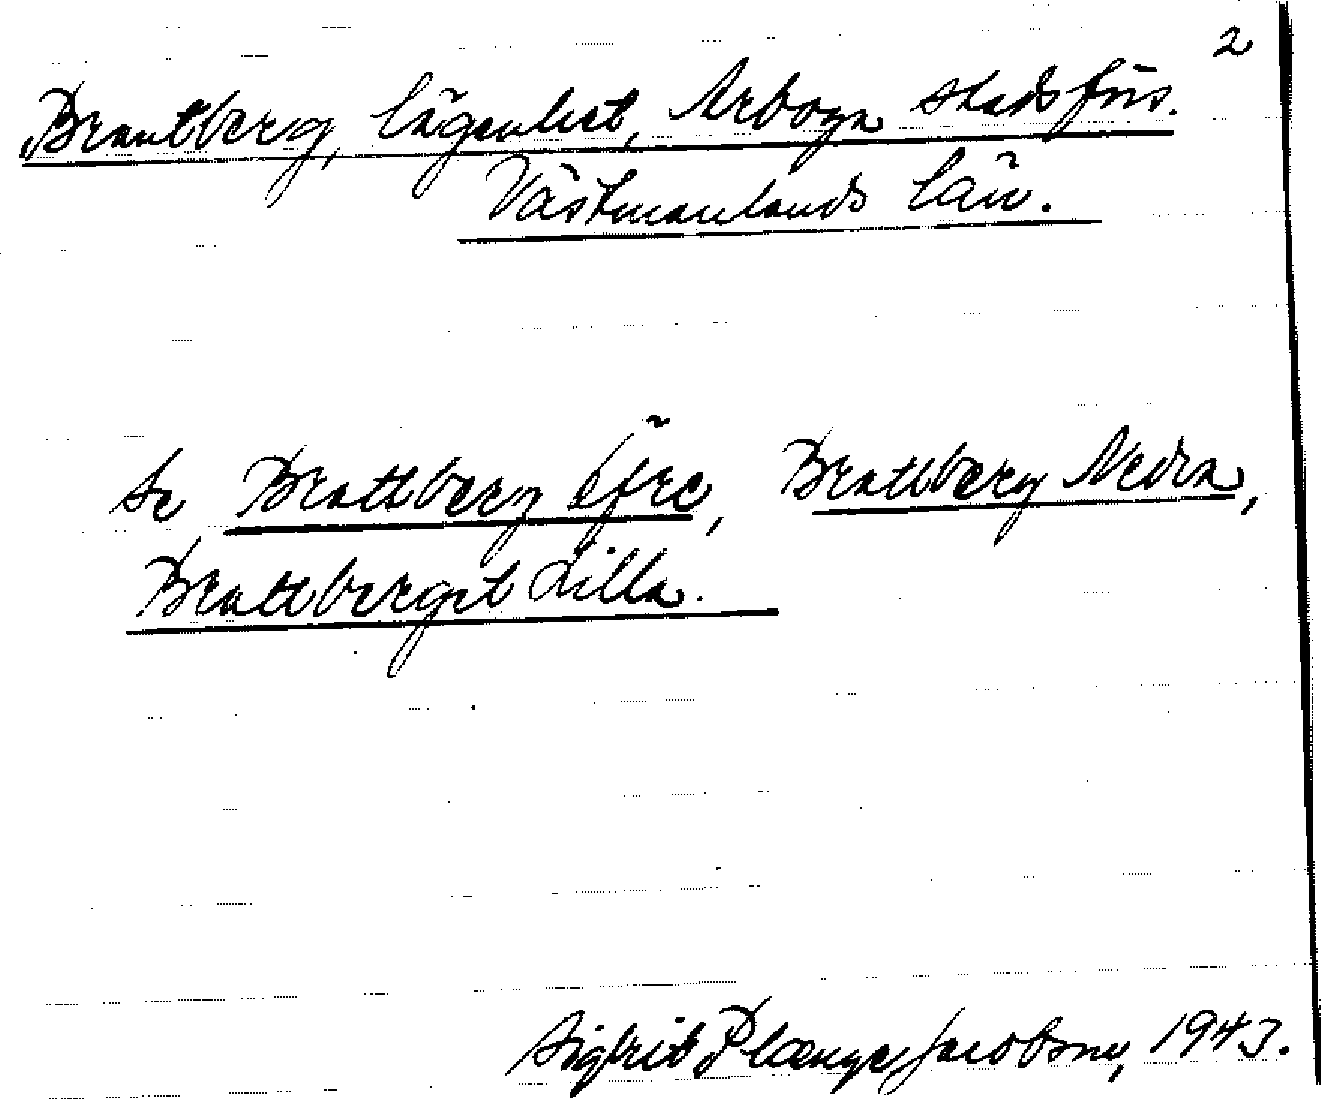 2
Brantberg, lägenhet, Arboga stadsförs.
Västmanlands län.
Se Brattberg Öfre, Brattberg Nedra,
Brattberget Lilla.
Sigfrit Plænge Jacobson, 1943.